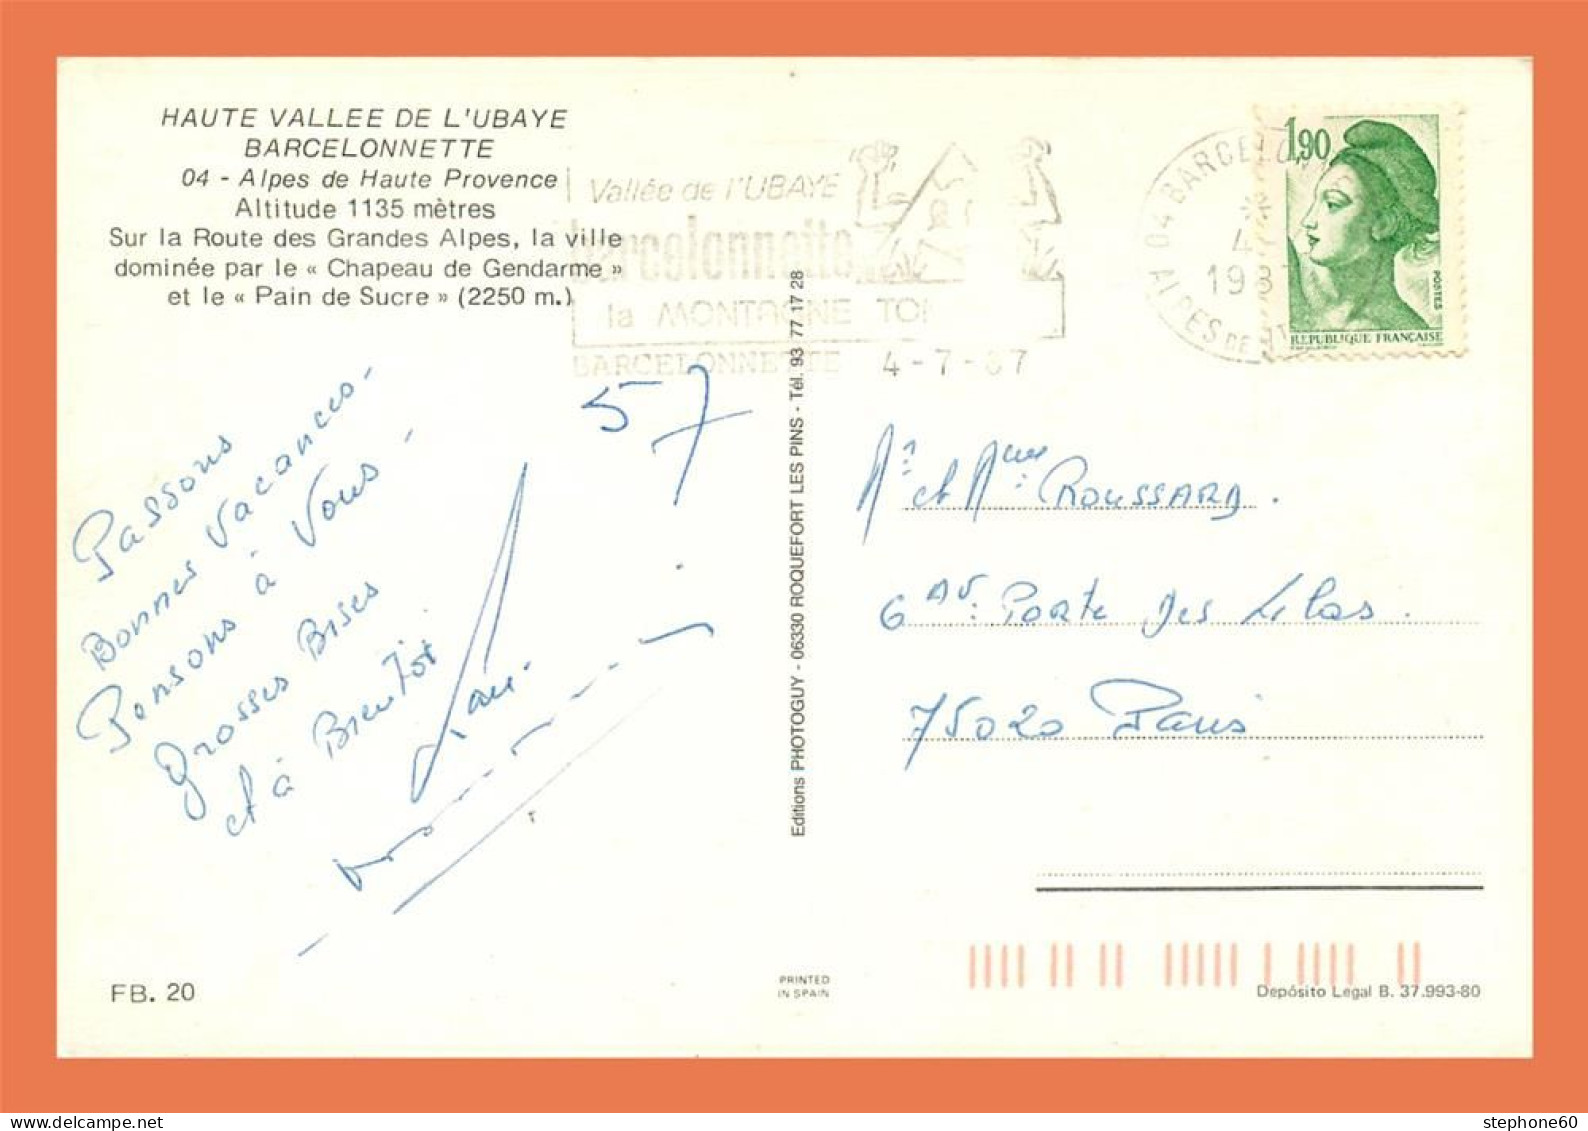 HAUTE VALLEE DE L'UBAYE
BARCELONNETTE
04 - Alpes de Haute Provence
Altitude 1135 mètres
Sur la Route des Grandes Alpes, la ville
dominée par le « Chapeau de Gendarme »
et le « Pain de Sucre » (2250 m.)
Vallée de l'UBAYE
barcelonnette
la MONTAGNE TOI
BARCELONNETTE 4-7-87
04 BARCELO
4
198
ALPES DE
1,90
POSTES
REPUBLIQUE FRANÇAISE
5 7
Passons
Bonnes Vacances -
Pensons à Vous -
Grosses Bises
et à Bientôt
Mr et Mme ROUSSARD.
6 AV: Porte des Lilas.
75020 Paris
Editions PHOTOGUY - 06330 ROQUEFORT LES PINS - Tél. 93 77 17 28
FB. 20
PRINTED
IN SPAIN
Depósito Legal B. 37.993-80
stephone60